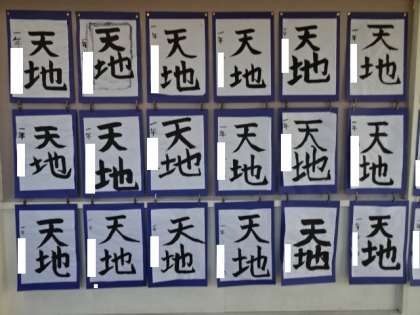 天地 一年
天地 一年
天地 一年
天地 一年
天地 一年
天地 一年
天地 一年
天地 一年
天地 一年
天地 一年
天地 一年
天地 一年
天地
天地 一年
天地 一年
天地 一年
天地
天地 一年